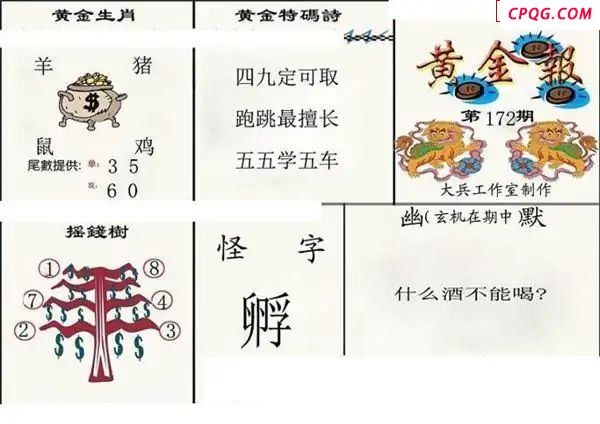 CPQG.COM
黄金生肖
羊 猪
鼠 鸡
尾數提供: 单: 3 5
双: 6 0
黄金特碼詩
四九定可取
跑跳最擅长
五五学五车
黄金報
第172期
大兵工作室制作
摇錢樹
① ⑧
⑦ ④
② ③
怪字
孵
幽(玄机在期中)默
什么酒不能喝?